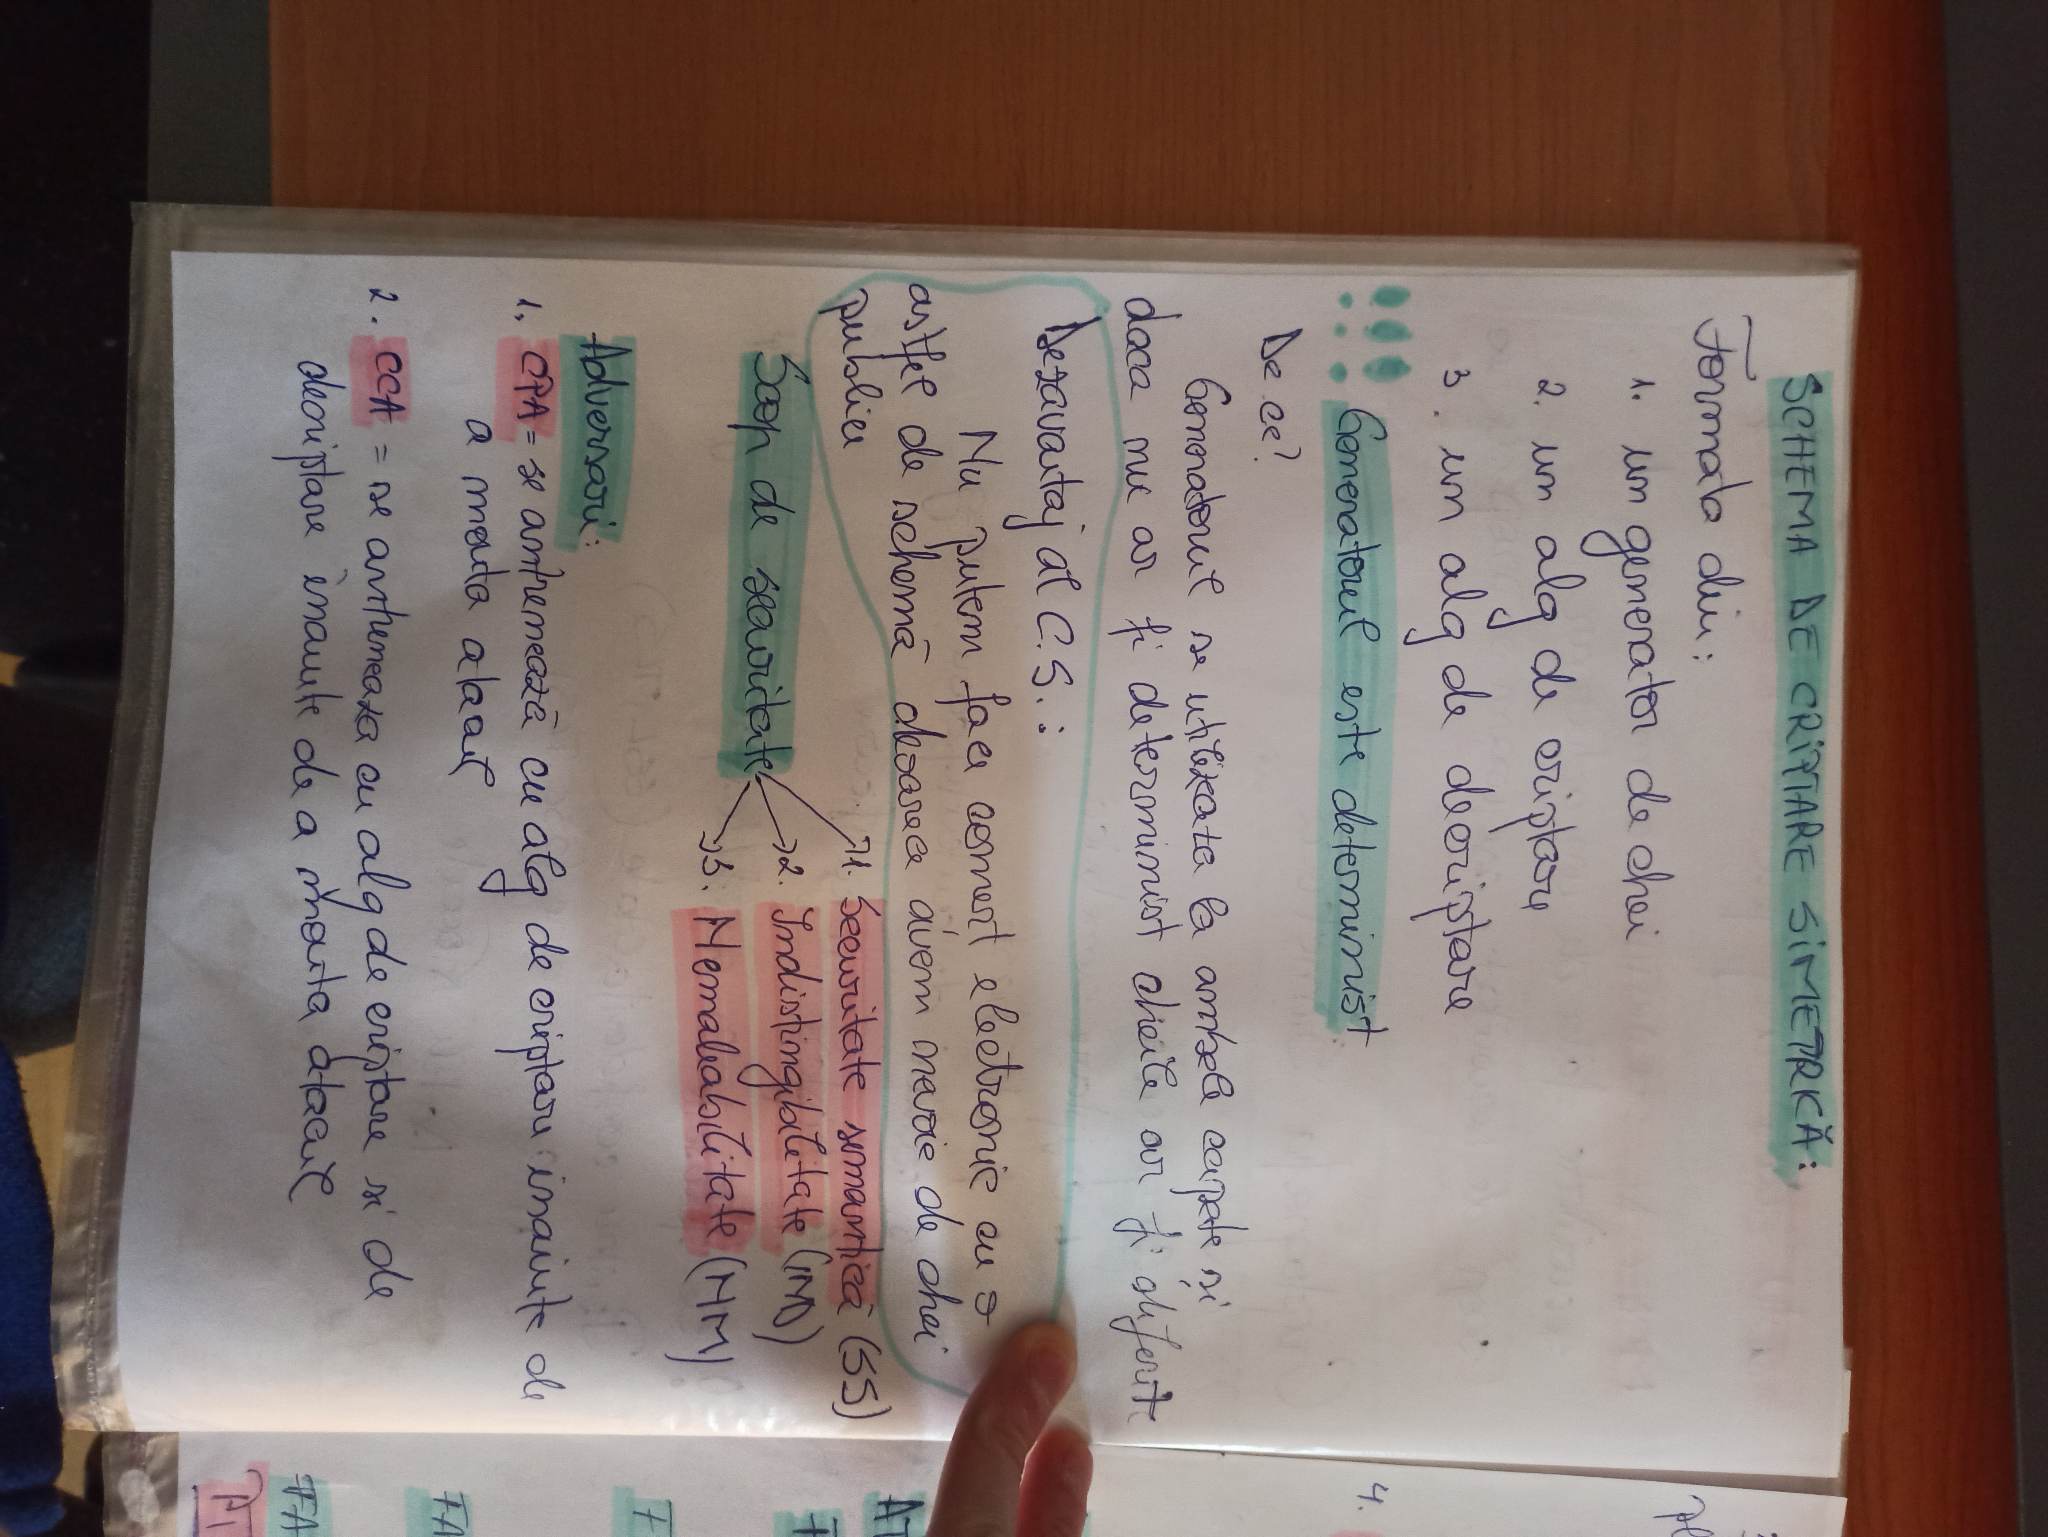 SCHEMA DE CRIPTARE SIMETRICĂ:
Formata din:
1. un generator de chei
2. un alg de criptare
3. un alg de decriptare
!!! Generatorul este determinist
De ce?
Generatorul se utilizata la ambele capete și
daca nu ar fi determinist cheile ar fi diferite
Dezavantaj al C.S.:
Nu putem face comert electronic cu o
astfel de schemă deoarece avem nevoie de chei
publice
Scop de securitate
→1. Securitate semantică (SS)
→2. Indistingibilitate (IND)
→3. Nemaleabilitate (NM)
Adversari:
1. CPA = se antrenează cu alg de criptare inainte de
a monta atacul
2. CCA = se antreneaza cu alg de criptare si de
decriptare inainte de a monta atacul
4.
AT
FA
FA